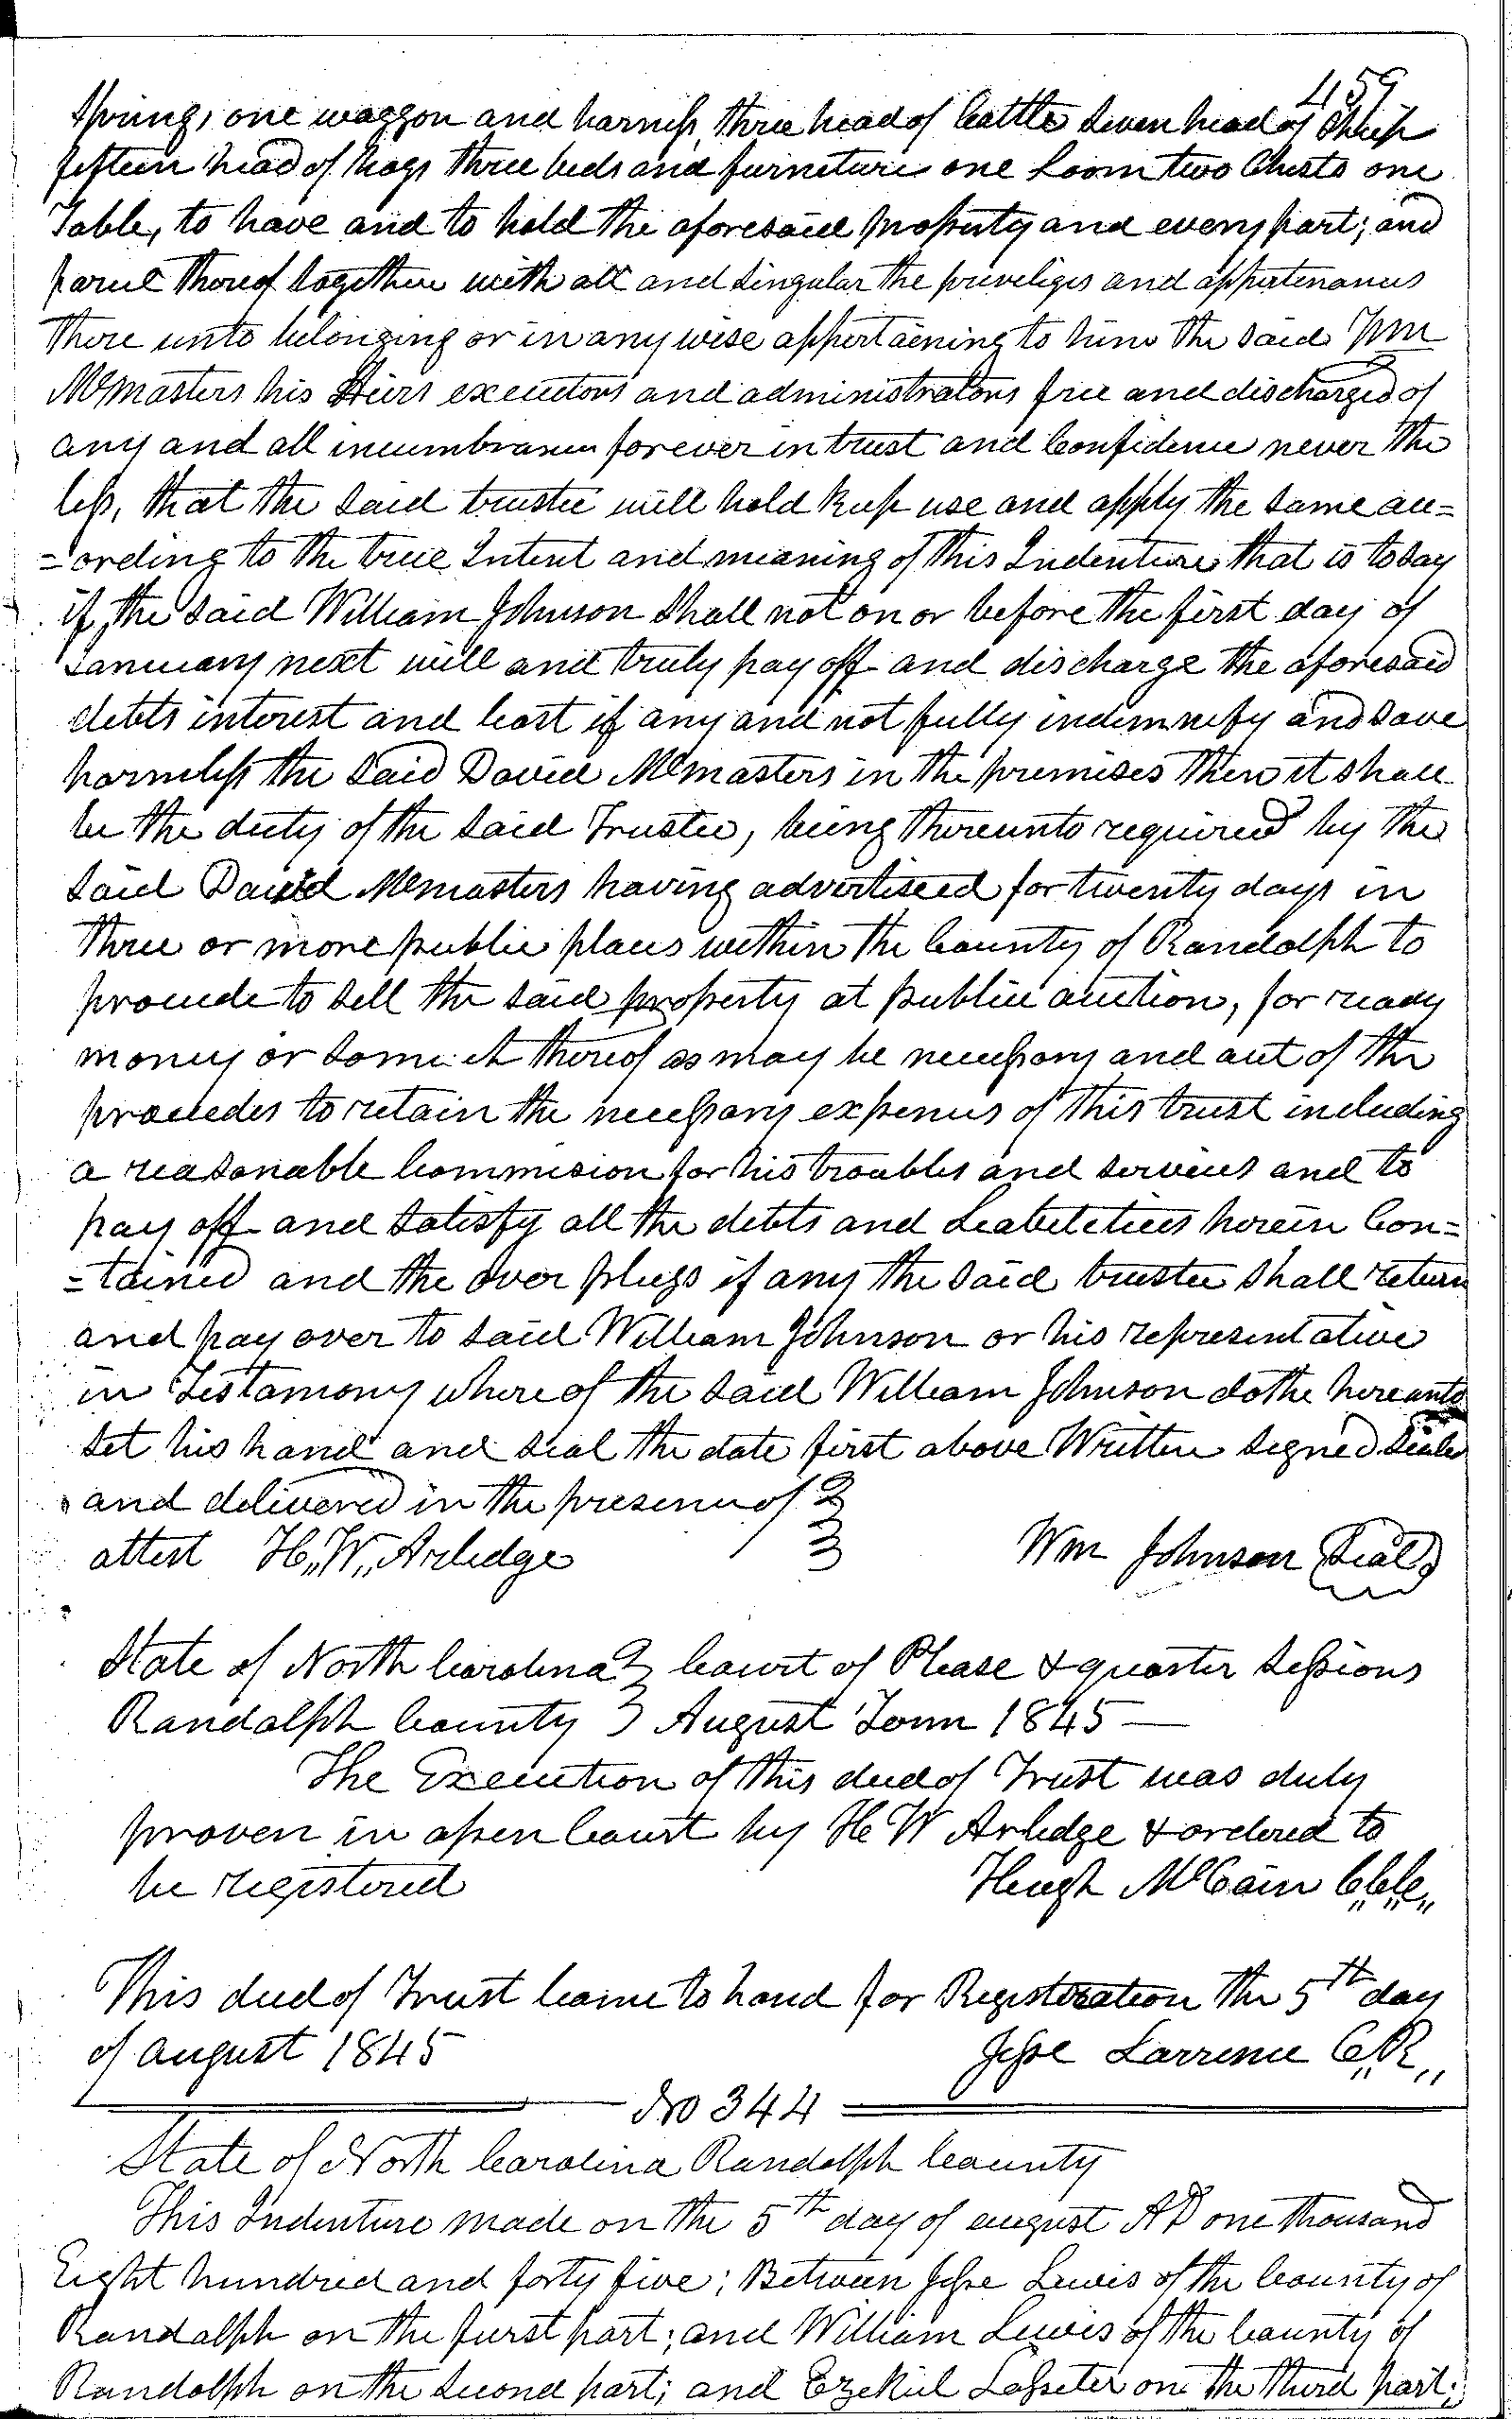 459
Spring, one waggon and harness three head of Cattle Seven head of Sheep
fifteen head of hogs three beds and furneture one Loom two Chests one
Table, to have and to hold the aforesaid property and every part; and
parcel thereof together with all and singular the priveliges and appertenances
there unto belonging or in any wise appertaining to him the said Wm
McMasters his Heirs executors and administrators free and discharged of
any and all incumbrances forever in trust and Confidence never the
less, that the said trustee will hold keep use and apply the same acc=
=ording to the true Intent and meaning of this Indenture that is to say
if the said William Johnson shall not on or before the first day of
January next well and truly pay off and discharge the aforesaid
debts interest and Cost if any and not fully indemnify and save
harmless the said David McMasters in the premises then it shall
be the duty of the said Trustee, being thereunto required by the
said David McMasters having advertised for twenty days in
three or more public places within the County of Randolph to
procede to sell the said property at public auction, for ready
money or so much thereof as may be necessary and out of the
procedes to retain the necessary expenses of this trust including
a reasonable Commision for his troubles and services and to
pay off and satisfy all the debts and Leabeleties herein Con=
=tained and the over pluss if any the said trustee shall return
and pay over to said William Johnson or his representative
in Testamony where of the said William Johnson dothe hereunto
set his hand and seal the date first above Written signed sealed
and delivered in the presence of
attest H,,W,, Arledge Wm Johnson (Seal)
State of North Carolina Court of Please & quarter Sessions
Randolph County August Term 1845 —
The Execution of this deed of Trust was duly
proven in open Court by H W Arledge & ordered to
be registered Hugh McCain C,,C,,C,,
This deed of Trust Came to hand for Registeration the 5th day
of august 1845 Jesse Larrence C,,R,,
No 344
State of North Carolina Randolph County
This Indenture made on the 5th day of august AD one thousand
Eight hundred and forty five; Between Jesse Lewis of the County of
Randolph on the furst part; and William Lewis of the County of
Randolph on the second part; and Ezekiel Lasseter on the third part;